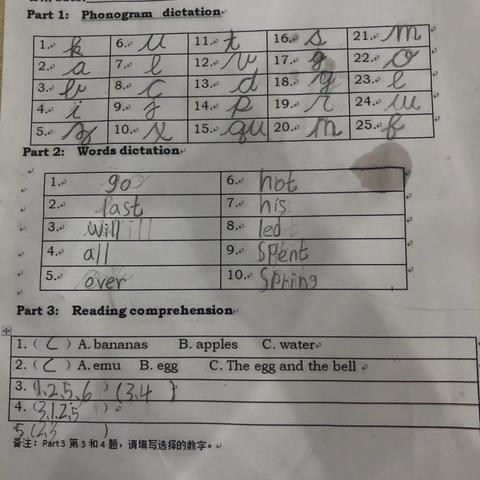 Part 1: Phonogram dictation
1. k 6. u 11. t 16. s 21. m
2. a 7. l 12. v 17. g 22. o
3. 8. c 13. d 18. y 23. l
4. i 9. z 14. p 19. r 24. w
5. 10. x 15. qu 20. n 25. f
Part 2: Words dictation
1. go 6. hot
2. last 7. his
3. will 8. led
4. all 9. spent
5. over 10. Spring
Part 3: Reading comprehension
1. ( C ) A. bananas B. apples C. water
2. ( C ) A. emu B. egg C. The egg and the bell
3. (1,2,5,6) (3,4)
4. (3,1,2,5)
5 (2,3 )
备注：Part3 第 3 和 4 题，请填写选择的数字。